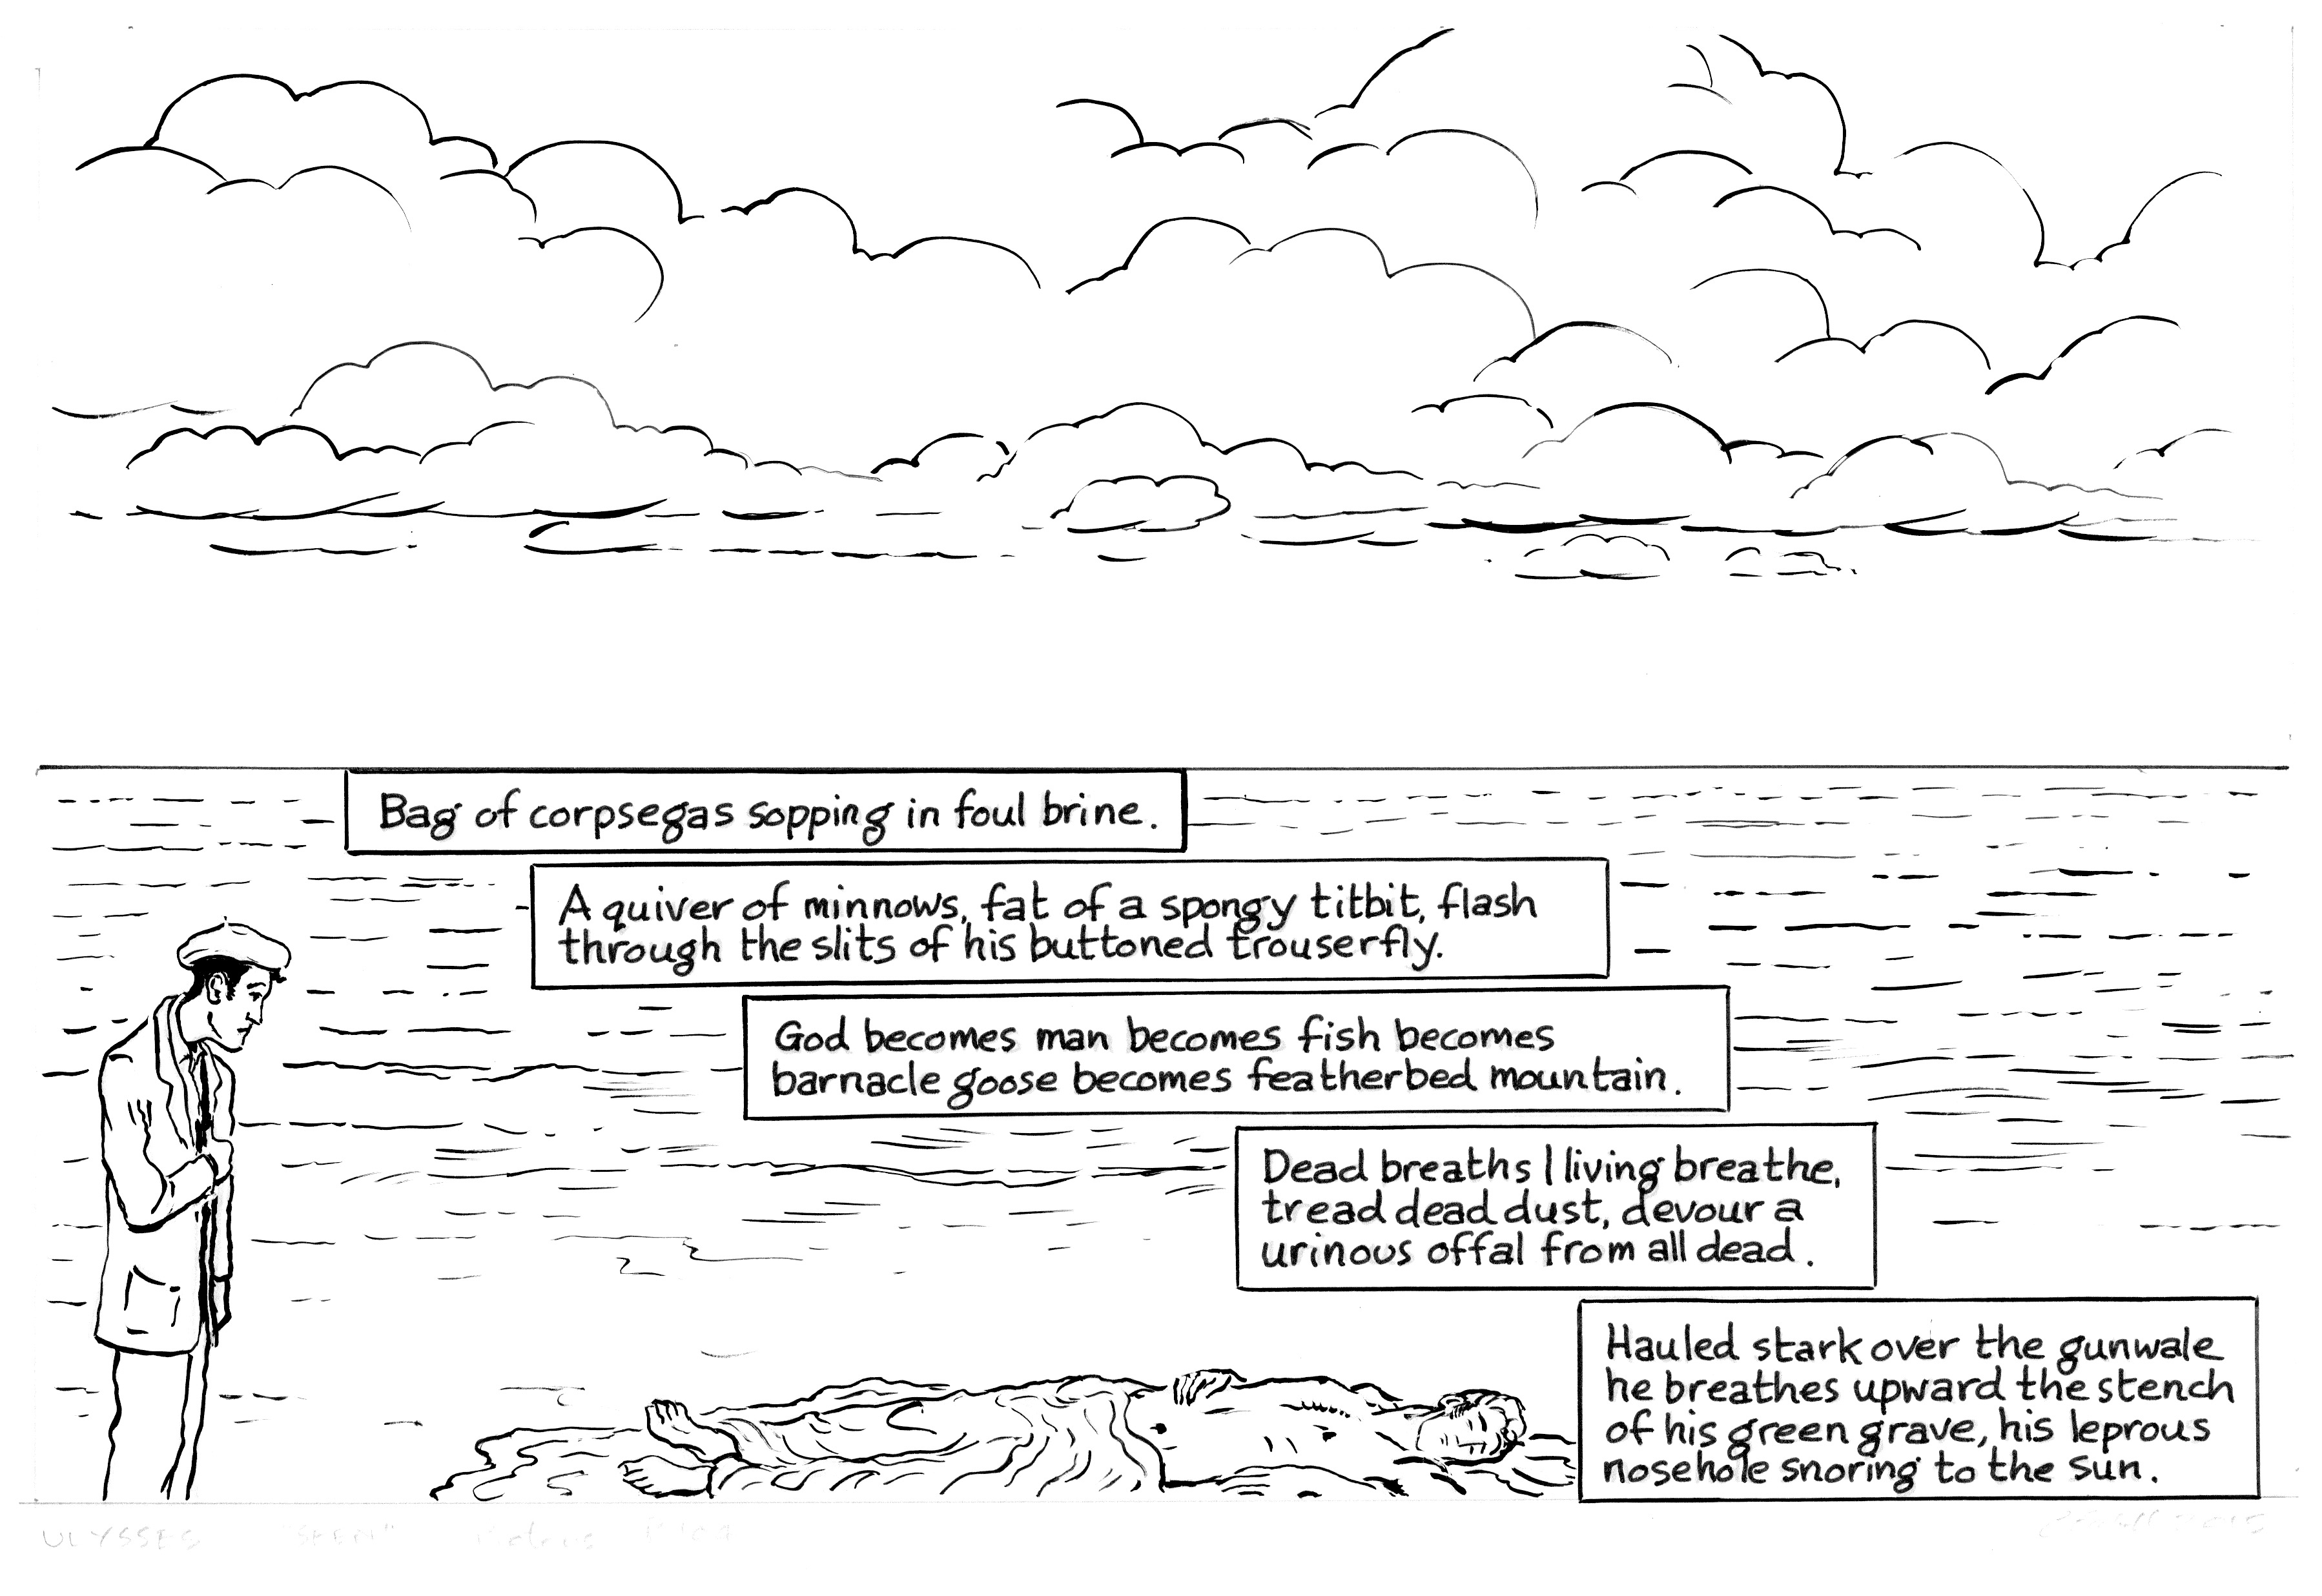 Bag of corpsegas sopping in foul brine.
A quiver of minnows, fat of a spongy titbit, flash
through the slits of his buttoned trouserfly.
God becomes man becomes fish becomes
barnacle goose becomes featherbed mountain.
Dead breaths I living breathe,
tread dead dust, devour a
urinous offal from all dead.
Hauled stark over the gunwale
he breathes upward the stench
of his green grave, his leprous
nosehole snoring to the sun.
ULYSSES "SEEN"